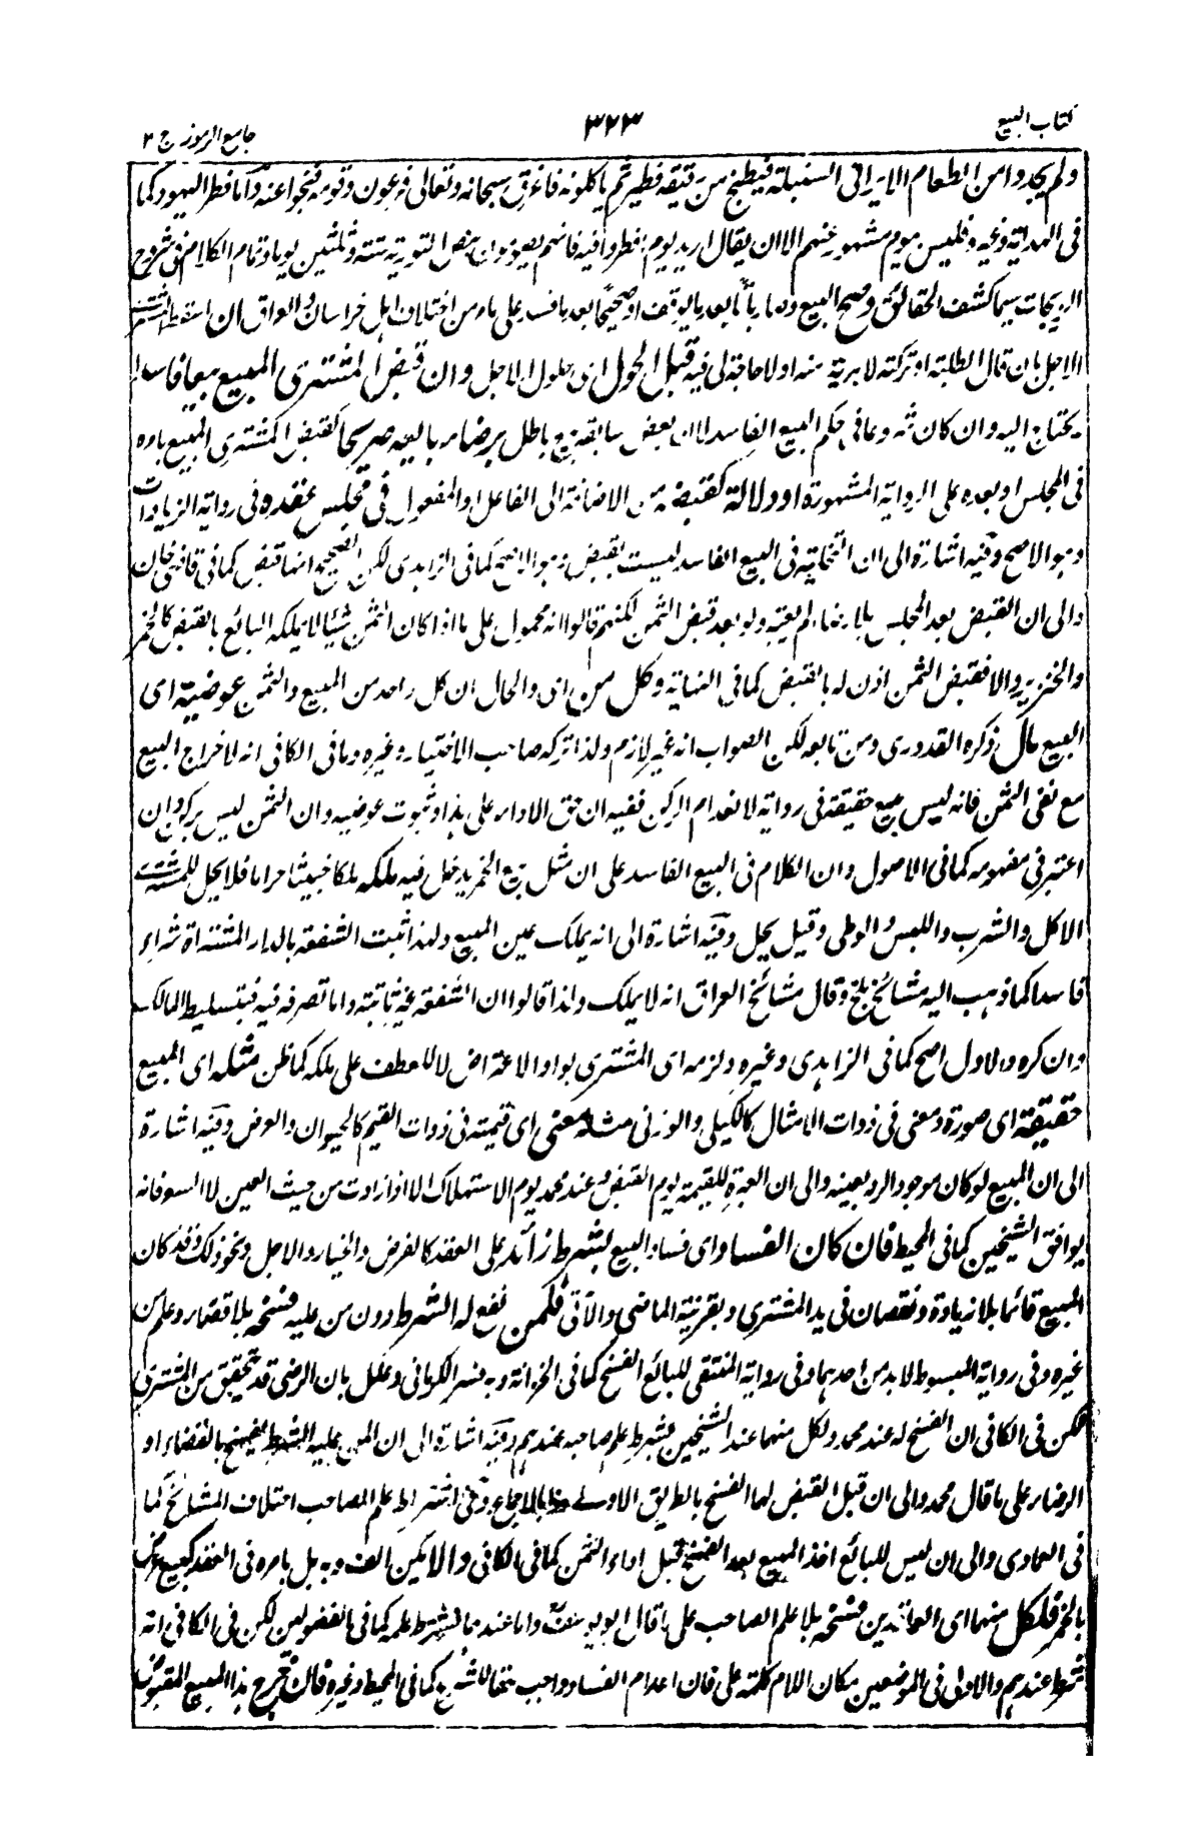 كتاب البيع
٣٢٣
جامع الرموز ج ٢
ولم يجدوا من الطعام الا البر التى السنبلة فيطبخ من دقيقه فطير ثم ياكلونه فاغرق سبحانه وتعالى فرعون وقومه فنجوا عنه واما فطر اليهود كما
فى الهداية وغيره فليس بيوم مشهور عنهم الا ان يقال اريد يوم افطروا فيه فانهم يصومون بنص التورية ستة وثلثين يوما وتمام الكلام فى شروح
الزيجات سيما كشف الحقائق وصح البيع بعد يا لوقف او صحيحا بعد يا فسد على مامر من اختلاف اهل خراسان والعراق ان اسقط المشترى
الاجل بان قال ابطلته او تركته لا بريت منه او لا حاجة لى فيه قبل الحول اى حلول الاجل وان قبض المشترى المبيع بيعا فاسدا
يحتاج اليه وان كان ثمه وعافى حكم البيع الفاسد لان بعض سابقه بيع باطل برضاء بائعه صريحا كقبض المشترى المبيع بامره
فى المجلس او بعده على الرواية المشهورة او دلالة كقبضه من الاضافة الى الفاعل او المفعول فى مجلس عقده وفى رواية الزيادات
وهو الاصح وفيه اشارة الى ان التخلية فى البيع الفاسد ليست بقبض وهو الاصح كما فى الزاهدى لكن الصحيح انها قبض كما فى قاضى خان
والى ان القبض بعد المجلس بلا رضاء لم يعتبر ولو بعد قبض الثمن لكنهم قالوا انه محمول على ما اذا كان الثمن شيئا لا يملكه البائع بالقبض كالخمر
والخنزير والا فقبض الثمن اذن له بالقبض كما فى النهاية وكل من اى والحال ان كل واحد من المبيع والثمن عوضيه اى
البيع مال ذكره القدورى ومن تابعه لكن الصواب انه غير لازم ولذا تركه صاحب الاختيار وغيره وما فى الكافى انه لاخراج البيع
مع نفى الثمن فانه ليس ببيع حقيقة فى رواية لانعدام الركن ففيه ان حق الاداء على هذا وثبوت عوضيه وان الثمن ليس بركن وان
اعتبر فى مفهومه كما فى الاصول وان الكلام فى البيع الفاسد على ان مثل بيع الخمر يدخل فيه ملكه ملكا خبيثا حراما فلا يحل للمشترى
الاكل والشرب واللبس والوطى وقيل يحل وفيه اشارة الى انه يملك عين المبيع ولهذا ثبت الشفعة بالدار المشتراة شراء
فاسدا كما ذهب اليه مشائخ بلخ وقال مشائخ العراق انه لا يملك ولذا قالوا ان الشفعة غير ثابتة واما تصرفه فيه فبتسليط المالك
وان كره والاول اصح كما فى الزاهدى وغيره ولزمه اى المشترى بواو الاعتراض لا للعطف على ملكه كما ظن مثله اى المبيع
حقيقة اى صورة ومعنى فى ذوات الامثال كالكيلى والوزنى مثله معنى اى قيمته فى ذوات القيم كالحيوان والعرض وفيه اشارة
الى ان المبيع لو كان موجودا لرد بعينه والى ان العبرة للقيمة يوم القبض وعند محمد يوم الاستهلاك الا اذا زادت من حيث العين لا السعر فانه
يوافق الشيخين كما فى المحيط فان كان الفساد اى فساد البيع بشرط زائد على العقد كالقرض والخيار والاجل ونحو ذلك وقد كان
المبيع قائما بلا زيادة ونقصان فى يد المشترى وبقرينة الماضى والآتى فلمن نفع له الشرط دون من عليه فسخه بلا قضاء وعلم من
غيره وفى رواية المبسوط لا بد من احدهما وفى رواية المنتقى للبائع الفسخ كما فى الخزانة وبه فسر الكرمانى وعلل بان الرضى قد تحقق من المشترى
لكن فى الكافى ان الفسخ له عند محمد ولكل منهما عند الشيخين بشرط علم صاحبه عندهم وفيه اشارة الى ان من عليه الشرط يفسخ بالقضاء او
الرضاء على ما قال محمد والى ان قبل القبض لهما الفسخ بالطريق الاولى هذا بالاجماع وفى اشتراط علم الصاحب اختلاف المشائخ كما
فى العمادى والى ان ليس للبائع اخذ المبيع بعد الفسخ قبل اداء الثمن كما فى الكافى والا يكن الفساد به بل بامر فى العقد كبيع عرض
بالخمر فلكل منهما اى العاقدين فسخه بلا علم الصاحب على ما قال ابو يوسف واما عندهما فشرط علمه كما فى الفصولين لكن فى الكافى انه
شرط عندهم والاولى فى الموضعين مكان اللام كلمة على فان اعدام الفساد واجب حقا للشرع كما فى المحيط وغيره فان خرج هذا المبيع المقبوض